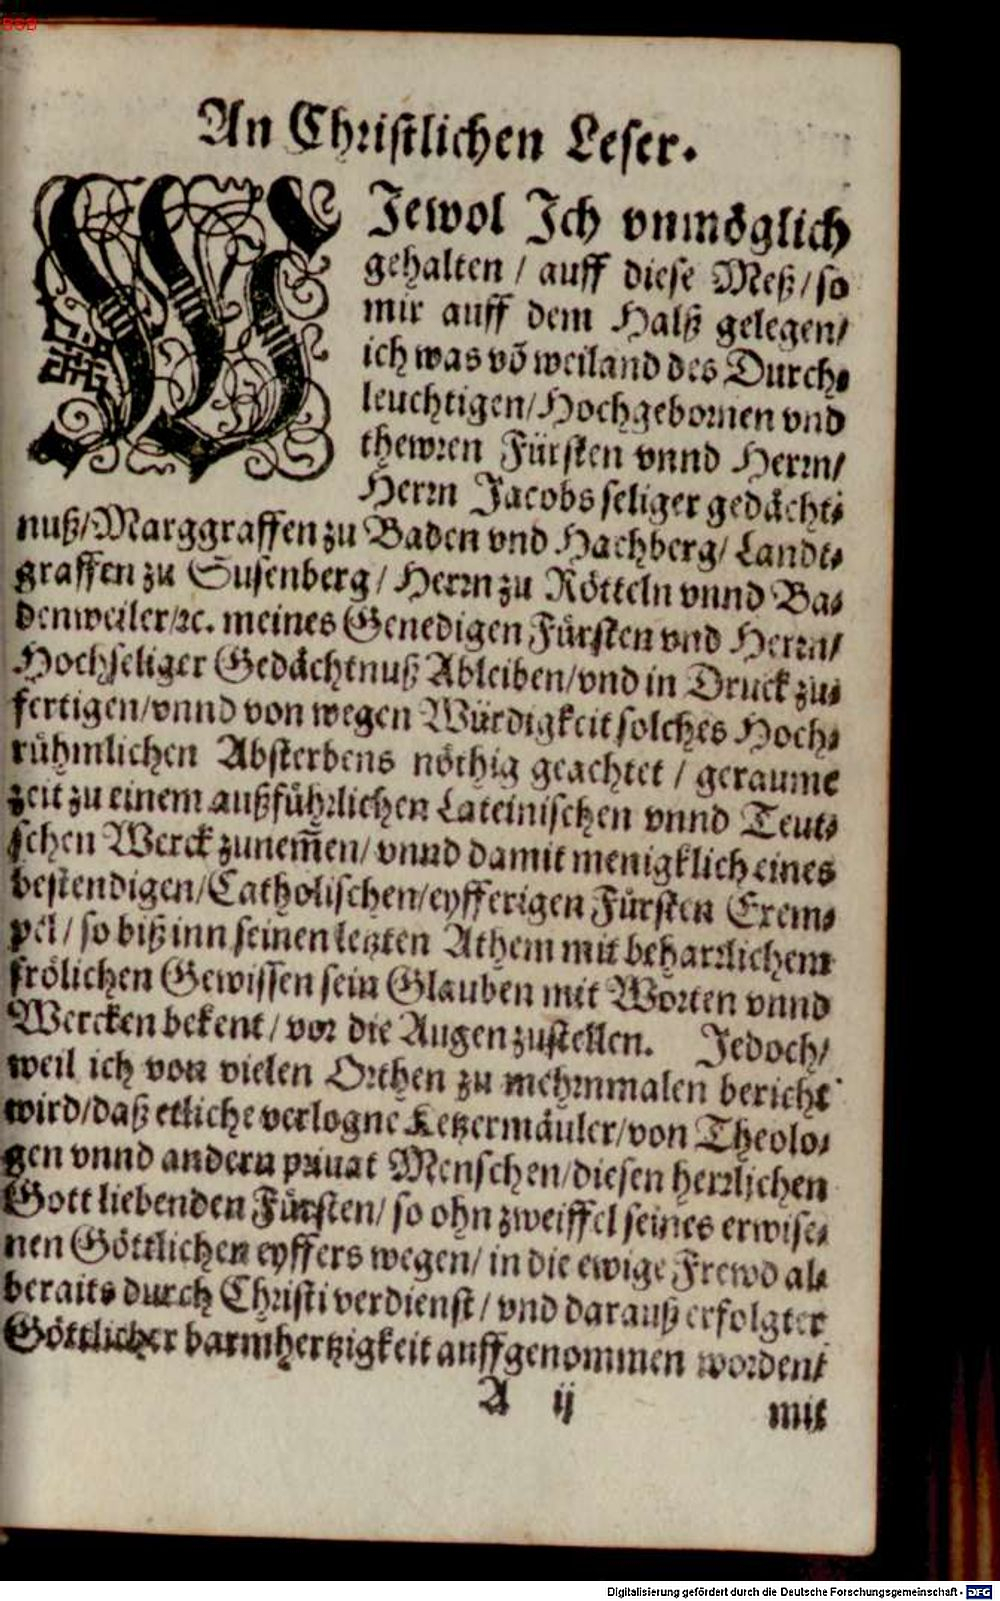 An Christlichen Leser.
WJewol Jch vnmöglich
gehalten / auff diese Meß / so
mir auff dem Halß gelegen /
ich was võ weiland des Durch⸗
leuchtigen / Hochgebornen vnd
thewren Fürsten vnnd Herrn /
Herrn Jacobs seliger gedächt⸗
nuß / Marggraffen zu Baden vnd Hachberg / Landt⸗
graffen zu Susenberg / Herrn zu Rötteln vnnd Ba⸗
denweiler / ꝛc. meines Genedigen Fürsten vnd Herrn /
Hochseliger Gedächtnuß Ableiben / vnd in Druck zu⸗
fertigen / vnnd von wegen Würdigkeit solches Hoch⸗
rühmlichen Absterbens nöthig geachtet / geraume
zeit zu einem außführlichen Lateinischen vnnd Teut⸗
schen Werck zunem̃en / vnnd damit menigklich eines
bestendigen / Catholischen / eyfferigen Fürsten Exem⸗
pel / so biß inn seinen letzten Athem mit beharrlichem
frölichen Gewissen sein Glauben mit Worten vnnd
Wercken bekent / vor die Augen zustellen. Jedoch /
weil ich von vielen Orthen zu mehrnmalen bericht
wird / daß etliche verlogne Ketzermäuler / von Theolo⸗
gen vnnd andern priuat Menschen / diesen herrlichen
Gott liebenden Fürsten / so ohn zweiffel seines erwise⸗
nen Göttlichen eyffers wegen / in die ewige Frewd al⸗
beraits durch Christi verdienst / vnd darauß erfolgter
Göttlicher barmhertzigkeit auffgenommen worden /
A ij
mit
Digitalisierung gefördert durch die Deutsche Forschungsgemeinschaft - DFG